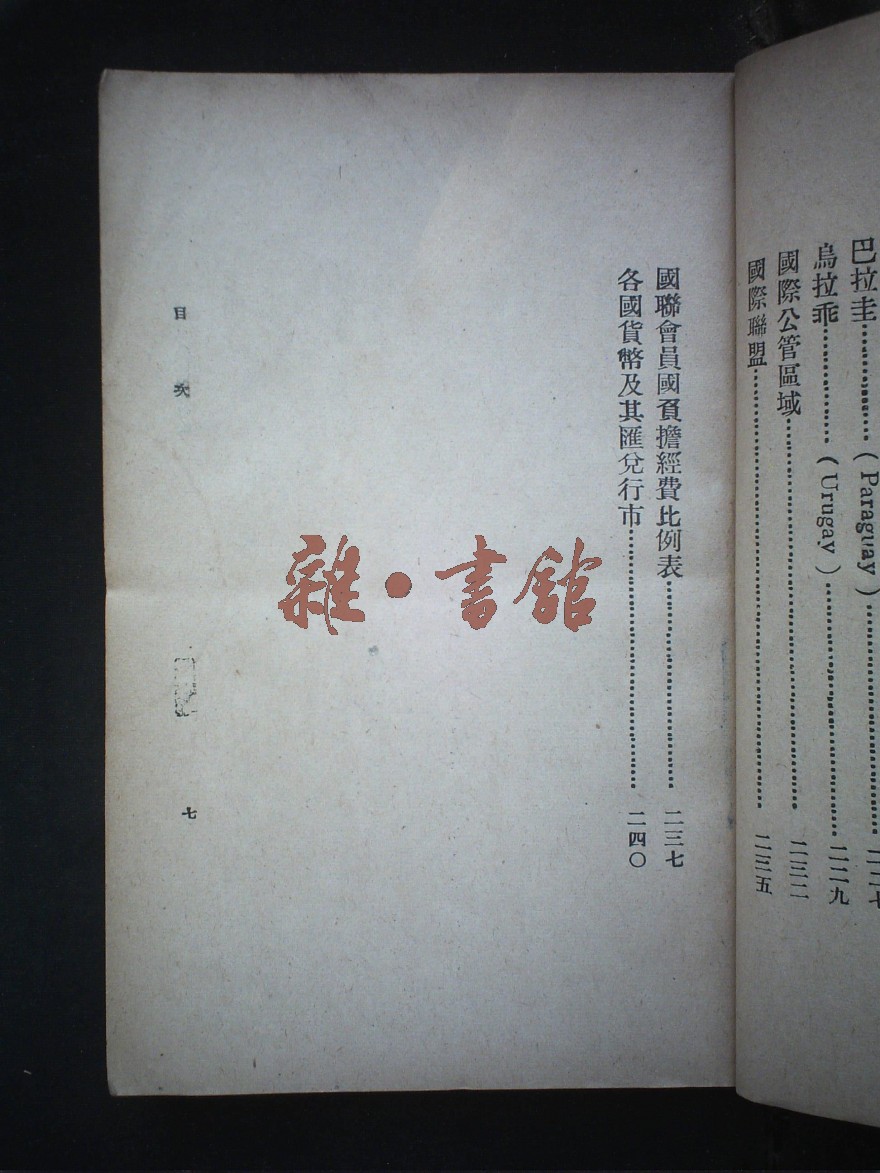 巴拉圭……………(Paraguay)……………二二七
烏拉乖……………(Urugay)……………二二九
國際公管區域……………二三二
國際聯盟……………二三五
國聯會員國負擔經費比例表……………二三七
各國貨幣及其匯兌行市……………二四〇
目次
七
雜·書館